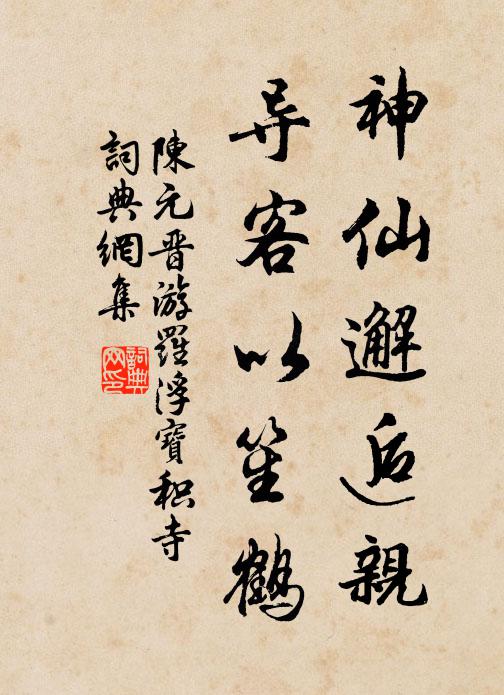 神仙邂逅親
导客以笙鶴
陳元晋游羅浮寶积寺
詞典網集
詞典网印